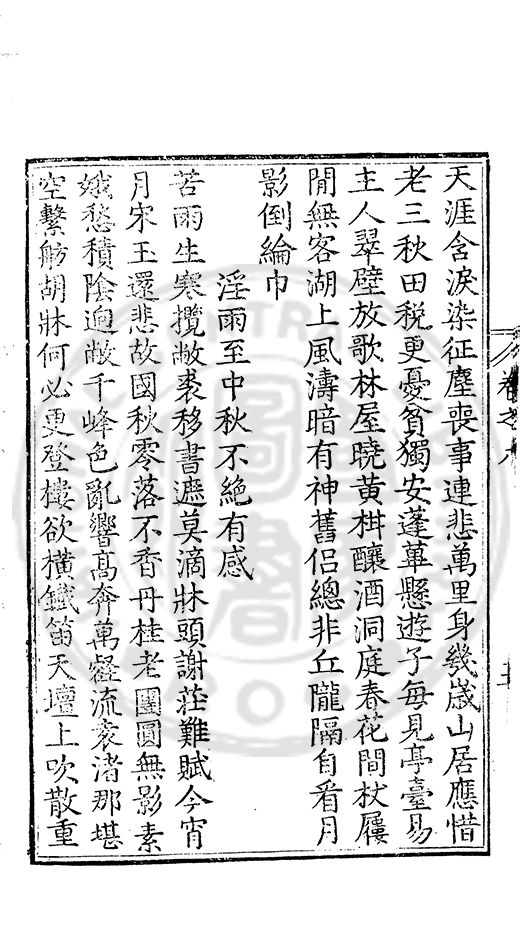 天涯含淚染征塵喪事連悲萬里身幾歲山居應惜
老三秋田稅更憂貧獨安蓬蓽懸遊子每見亭臺易
主人翠壁放歌林屋曉黄柑釀酒洞庭春花間杖屨
閒無客湖上風濤暗有神舊侣總非丘隴隔自看月
影倒綸巾
淫雨至中秋不絶有感
苦雨生寒攬敝裘移書遮莫滴牀頭謝莊難賦今宵
月宋玉還悲故國秋零落不香丹桂老團圓無影素
娥愁積陰逈敝千峰色亂響髙奔萬壑流袁渚那堪
空繫舫胡牀何必更登樓欲横鐵笛天壇上吹散重
卷之八